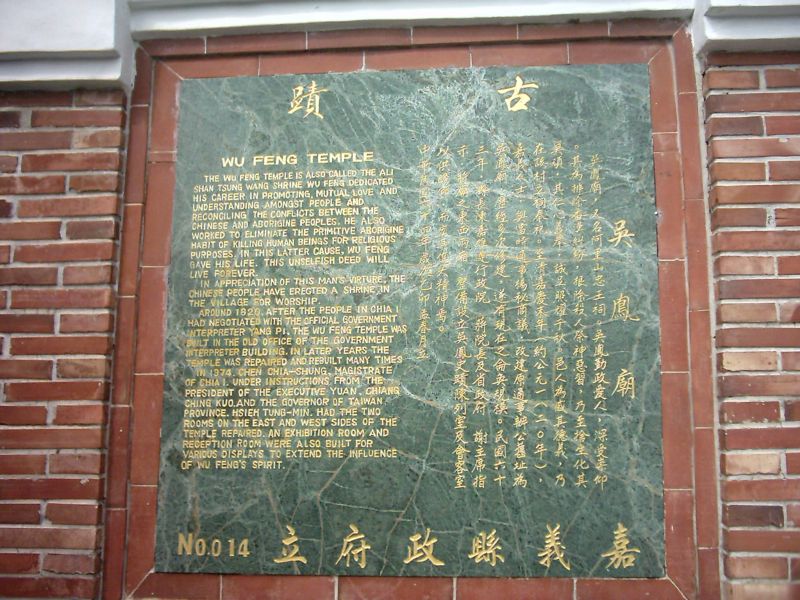 古蹟
吳鳳廟
吳鳳廟,又名阿里山忠王祠。吳鳳勤政愛人,深受 仰
。其為排除番漢糾紛,根除殺人祭神惡習,乃至捨生化其
冥頑,其仁心義舉,誠足照耀千秋。邑人為感其德義,乃
在該村立祠奉祀。至清嘉慶末年(約公元一八二〇年),
嘉義人士,與當時通事楊秘商議,改建原通事辦公舊址為
吳鳳廟,歷經多次修建,遂有現在之侖奐規模。民國六十
三年,縣長陳嘉雄遵行政院 蔣院長及省政府 謝主席指
示,將廟之東西兩廂,整備設立吳鳳史蹟陳列室及會客室
以供 ,而宏其偉大精神焉。
中華民國六十四年歲次乙卯孟春月立
WU FENG TEMPLE
THE WU FENG TEMPLE IS ALSO CALLED THE ALI
SHAN TSUNG WANG SHRINE WU FENG DEDICATED
HIS CAREER IN PROMOTING, MUTUAL LOVE AND
UNDERSTANDING AMONGST PEOPLE AND
RECONCILING THE CONFLICTS BETWEEN THE
CHINESE AND ABORIGINE PEOPLES. HE ALSO
WORKED TO ELIMINATE THE PRIMITIVE ABORIGINE
HABIT OF KILLING HUMAN BEINGS FOR RELIGIOUS
PURPOSES. IN THIS LATTER CAUSE, WU FENG
GAVE HIS LIFE. THIS UNSELFISH DEED WILL
LIVE FOREVER.
IN APPRECIATION OF THIS MAN'S VIRTURE, THE
CHINESE PEOPLE HAVE ERECTED A SHRINE IN
THE VILLAGE FOR WORSHIP.
AROUND 1820, AFTER THE PEOPLE IN CHIA I
HAD NEGOTIATED WITH THE OFFICIAL GOVERNMENT
INTERPRETER YANG PI, THE WU FENG TEMPLE WAS
BUILT IN THE OLD OFFICE OF THE GOVERNMENT
INTERPRETER BUILDING. IN LATER YEARS THE
TEMPLE WAS REPAIRED AND REBUILT MANY TIMES
IN 1974, CHEN CHIA-SHUNG, MAGISTRATE
OF CHIA I, UNDER INSTRUCTIONS FROM THE
PRESIDENT OF THE EXECUTIVE YUAN, CHIANG
CHING KUO, AND THE GOVERNOR OF TAIWAN
PROVINCE, HSIEH TUNG-MIN, HAD THE TWO
ROOMS ON THE EAST AND WEST SIDES OF THE
TEMPLE REPAIRED. AN EXHIBITION ROOM AND
RECEPTION ROOM WERE ALSO BUILT FOR
VARIOUS DISPLAYS TO EXTEND THE INFLUENCE
OF WU FENG'S SPIRIT.
嘉義縣政府立
No.014